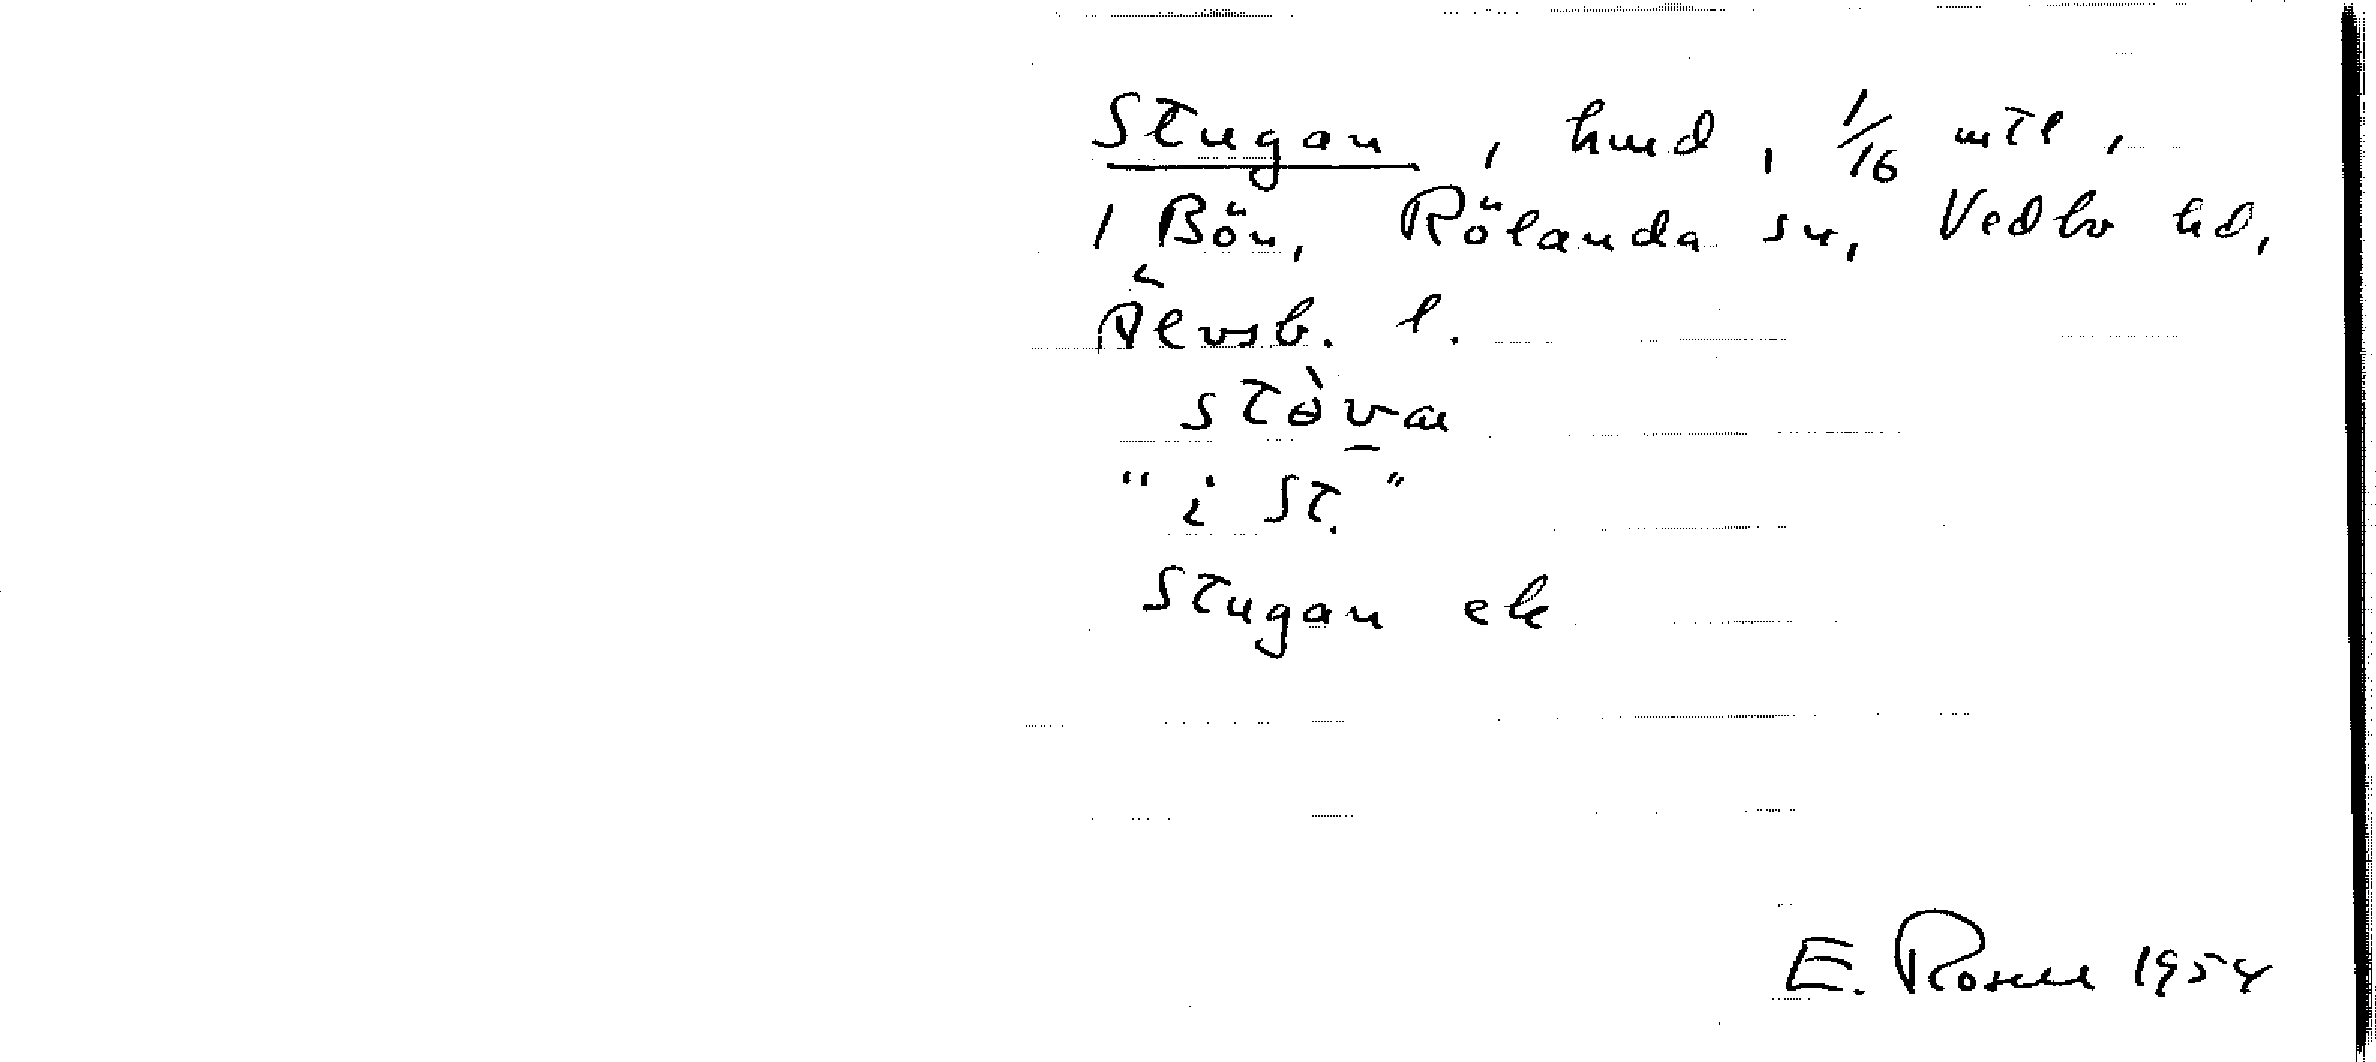 Stugan, hmd, 1/16 mtl,
i Bön, Rölanda sn, Vedbo hd,
Älvsb. l.
stòvæ
"i St."
Stugan ek
E. Rosell 1954